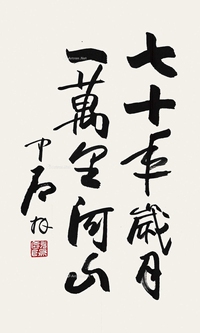 七十年歲月
一萬里河山
中石